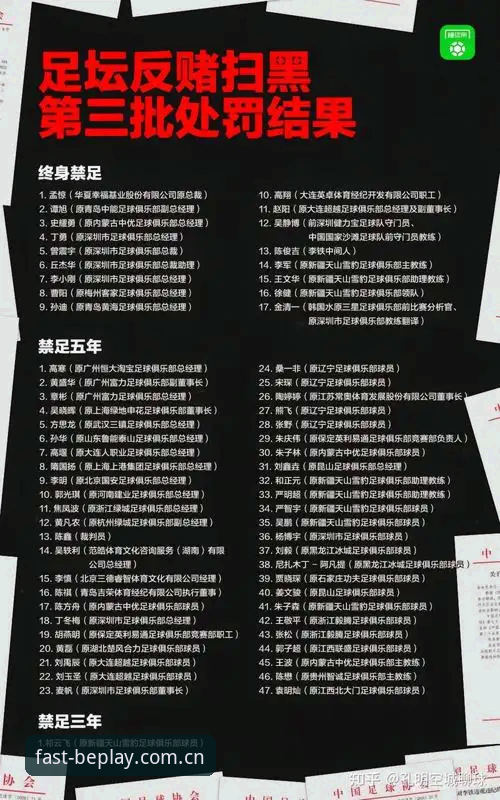 懂球帝
足坛反赌扫黑
第三批处罚结果
终身禁足
1. 孟惊（华夏幸福基业股份有限公司原总裁）
2. 谭旭（原青岛中能足球俱乐部副总经理）
3. 史耀勇（原内蒙古中优足球俱乐部总经理）
4. 丁勇（原深圳市足球俱乐部总经理）
5. 曾震宇（原深圳市足球俱乐部总裁）
6. 丘杰华（原深圳市足球俱乐部总裁助理）
7. 李小刚（原深圳市足球俱乐部总经理）
8. 曹阳（原梅州客家足球俱乐部总经理）
9. 孙迪（原青岛黄海足球俱乐部总经理）
10. 高翔（大连英卓体育经纪开发有限公司职工）
11. 赵阳（原大连超越足球俱乐部总经理及副董事长）
12. 吴静博（前深圳健力宝足球队守门员、
中国国家沙滩足球队前守门员教练）
13. 陈俊吉（李铁中间人）
14. 李军（原新疆天山雪豹足球俱乐部主教练）
15. 王文华（原新疆天山雪豹足球俱乐部助理教练）
16. 徐健（原新疆天山雪豹足球俱乐部领队）
17. 金清一（韩国水原三星足球俱乐部前比赛分析官、
原深圳市足球俱乐部教练翻译）
禁足五年
1. 高寒（原广州恒大淘宝足球俱乐部总经理）
2. 黄盛华（原广州富力足球俱乐部副董事长）
3. 章彬（原广州富力足球俱乐部总经理）
4. 吴晓晖（原上海绿地申花足球俱乐部董事长）
5. 方思龙（原武汉三镇足球俱乐部总经理）
6. 孙华（原山东鲁能泰山足球俱乐部总经理）
7. 高堰（原大连人职业足球俱乐部总经理）
8. 隋国扬（原上海上港集团足球俱乐部总经理）
9. 李明（原北京国安足球俱乐部总经理）
10. 郭光琪（原河南建业足球俱乐部总经理）
11. 焦凤波（原浙江绿城足球俱乐部总经理）
12. 黄凡农（原杭州绿城足球俱乐部副总经理）
13. 陈鑫（裁判员）
14. 吴轶利（范皓体育文化咨询服务（湖南）有限
公司总经理）
15. 李慎（北京三德睿智体育文化有限公司经理）
16. 陈祺（青岛吉荣体育经纪有限公司执行董事）
17. 陈方舟（原内蒙古中优足球俱乐部球员）
18. 丁冬梅（原深圳市足球俱乐部总经理）
19. 胡燕明（原保定英利易通足球俱乐部竞赛部职工）
20. 黄磊（原湖北楚风合力足球俱乐部球员）
21. 刘禹辰（原大连超越足球俱乐部球员）
22. 刘玉圣（原大连超越足球俱乐部球员）
23. 麦帆（原深圳市足球俱乐部董事长）
24. 桑一非（原辽宁足球俱乐部球员）
25. 宋琛（原辽宁足球俱乐部球员）
26. 陶婷婷（原江苏常奥体育发展股份有限公司董事长）
27. 熊飞（原辽宁足球俱乐部球员）
28. 张野（原辽宁足球俱乐部球员）
29. 朱庆伟（原保定英利易通足球俱乐部竞赛部负责人）
30. 朱子林（原内蒙古中优足球俱乐部球员）
31. 刘鑫垚（原昆山足球俱乐部球员）
32. 和正元（原新疆天山雪豹足球俱乐部助理教练）
33. 严明超（原新疆天山雪豹足球俱乐部助理教练）
34. 严智宇（原新疆天山雪豹足球俱乐部球员）
35. 吴鹏（原新疆天山雪豹足球俱乐部球员）
36. 杨博宇（原深圳市足球俱乐部球员）
37. 刘毅（原黑龙江冰城足球俱乐部球员）
38. 尼扎木丁－阿凡提（原黑龙江冰城足球俱乐部球员）
39. 贾晓琛（原石家庄功夫足球俱乐部球员）
40. 姜文骏（原昆山足球俱乐部球员）
41. 朱子森（原新疆天山雪豹足球俱乐部球员）
42. 王敬平（原浙江毅腾足球俱乐部球员）
43. 张松（原浙江毅腾足球俱乐部球员）
44. 郭子超（原江西联盛足球俱乐部球员）
45. 王波（原内蒙古中优足球俱乐部主教练）
46. 陈懋（原贵州智诚足球俱乐部主教练）
47. 袁明灿（原江西北大门足球俱乐部球员）
禁足三年
1. 祁云飞（原新疆天山雪豹足球俱乐部球员）
fast-beplay.com.cn
知乎 @孔明空城聊球
中国足球协会